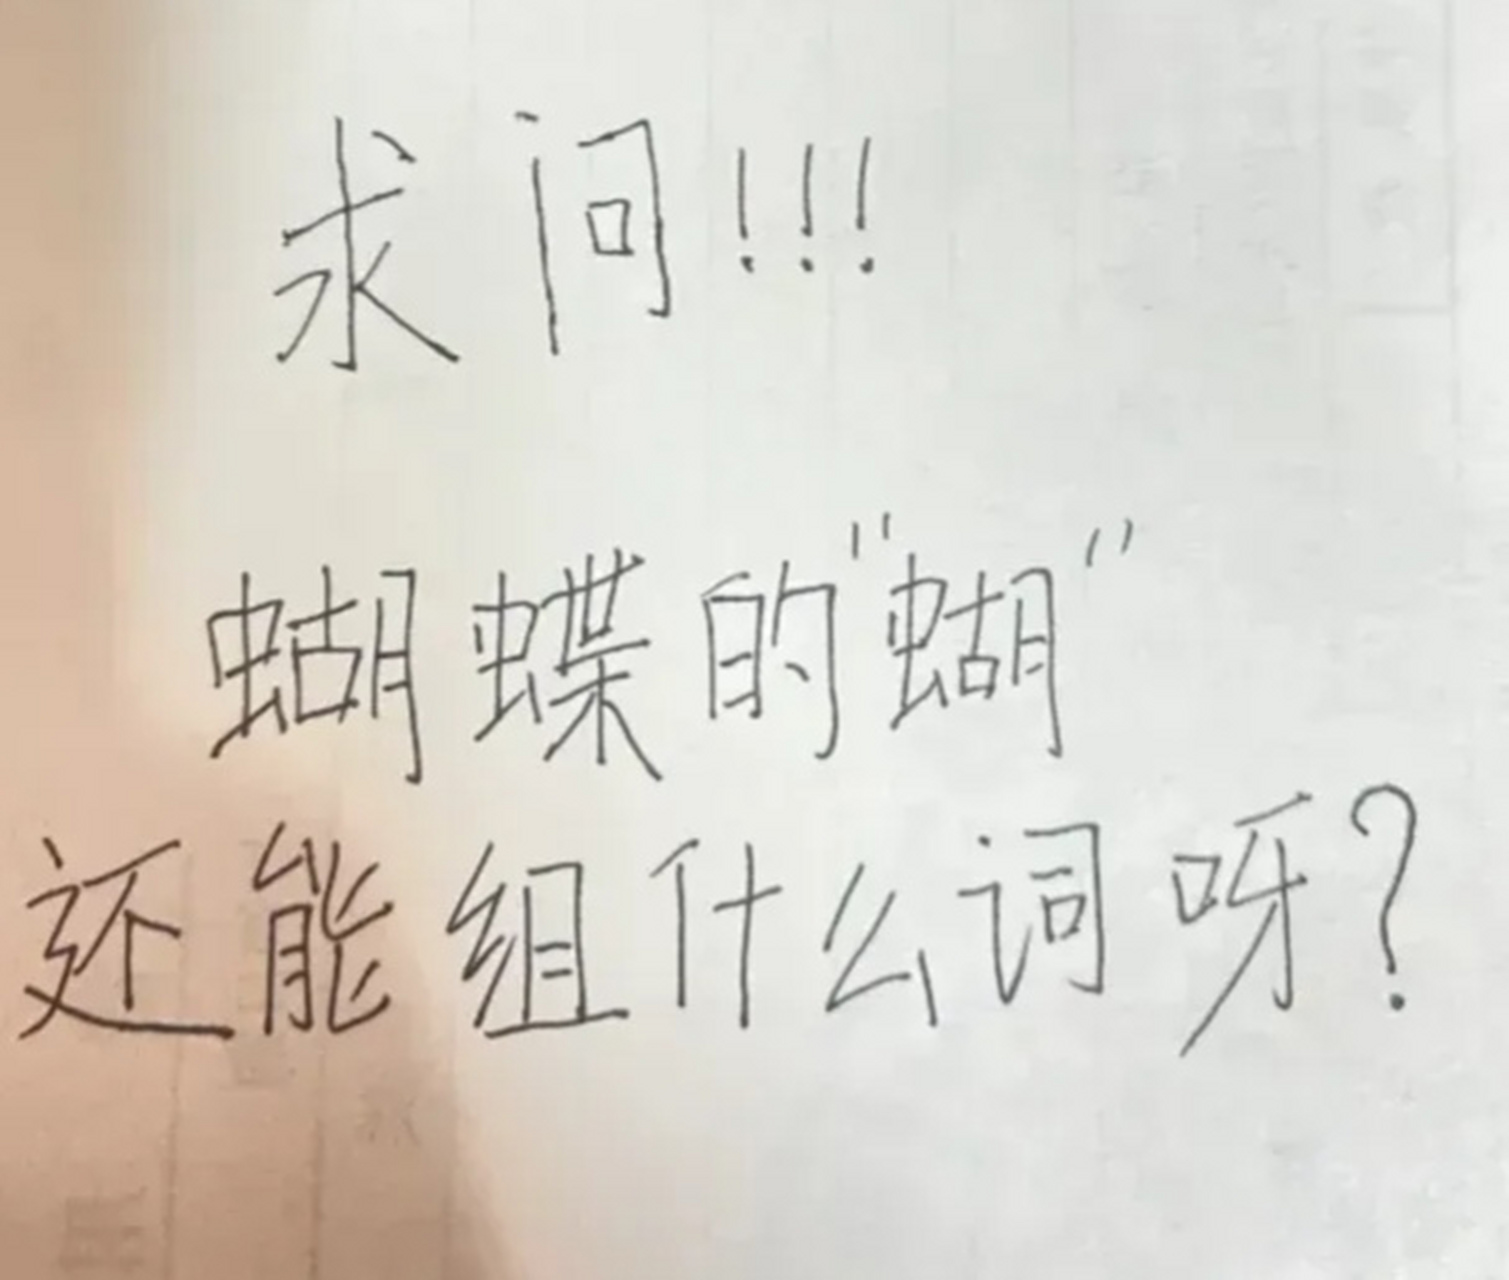 求问!!!
蝴蝶的"蝴"
还能组什么词呀?